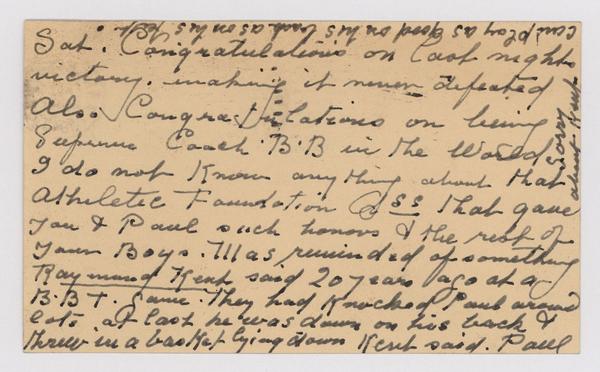 Sat. Congratulations on last nights
victory. making it never defeated
Also Congratulations on being
Supreme Coach B.B in the World
I do not Know anything about that
Athletic Foundation Ass that gave
You & Paul such honors & the rest of
Your Boys. I was reminded of something
Raymond Kent said 20 years ago at a
B.B.T. Game. They had Knocked Paul around
lots at last he was down on his back &
threw in a basket lying down Kent said. Paul
can play as good on his back as on his feet.
Sorry
about Kent